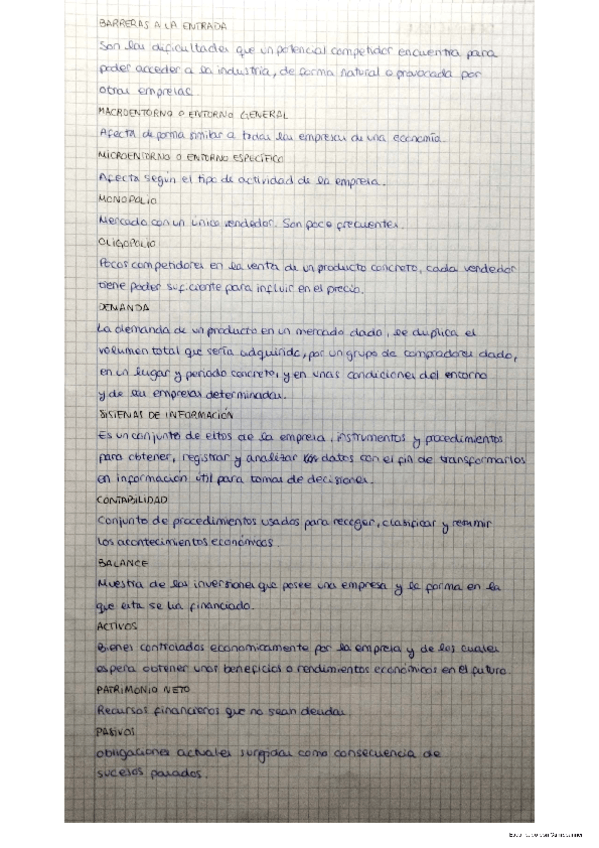 BARRERAS A LA ENTRADA
Son las dificultades que un potencial competidor encuentra para
poder acceder a la industria, de forma natural o provocada por
otras empresas.
MACROENTORNO O ENTORNO GENERAL
Afecta de forma similar a todas las empresas de una economía.
MICROENTORNO O ENTORNO ESPECÍFICO
Afecta según el tipo de actividad de la empresa.
MONOPOLIO
Mercado con un único vendedor. Son poco frecuentes.
OLIGOPOLIO
Pocos competidores en la venta de un producto concreto, cada vendedor
tiene poder suficiente para influir en el precio.
DEMANDA
La demanda de un producto en un mercado dado, se duplica el
volumen total que sería adquirido, por un grupo de compradores dado,
en un lugar y periodo concreto, y en unas condiciones del entorno
y de las empresas determinadas.
SISTEMAS DE INFORMACIÓN
Es un conjunto de de la empresa, instrumentos y procedimientos
para obtener, registrar y analizar los datos con el fin de transformarlos
en información útil para tomas de decisiones.
CONTABILIDAD
Conjunto de procedimientos usados para recoger, clasificar y resumir
los acontecimientos económicos.
BALANCE
Muestra de las inversiones que posee una empresa y la forma en la
que esta se ha financiado.
ACTIVOS
Bienes controlados economicamente por la empresa y de los cuales
espera obtener unos beneficios o rendimientos económicos en el futuro.
PATRIMONIO NETO
Recursos financieros que no sean deudas
PASIVOS
obligaciones actuales surgidas como consecuencia de
sucesos pasados.